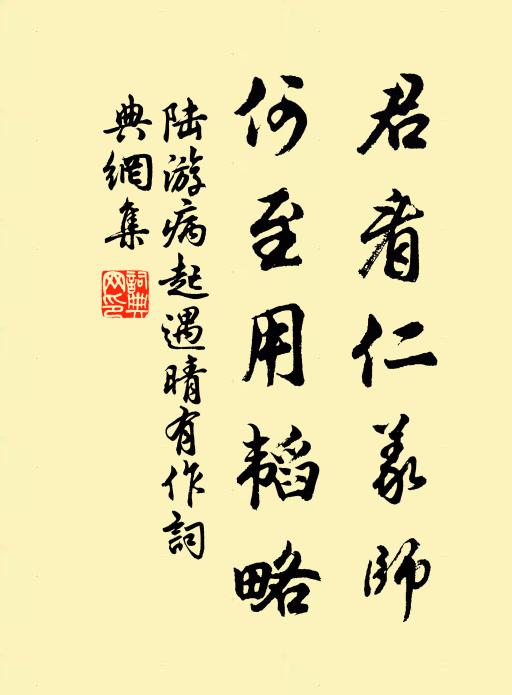 君看仁义师
何至用韬略
陆游病起遇晴有作詞
典網集
詞典网印